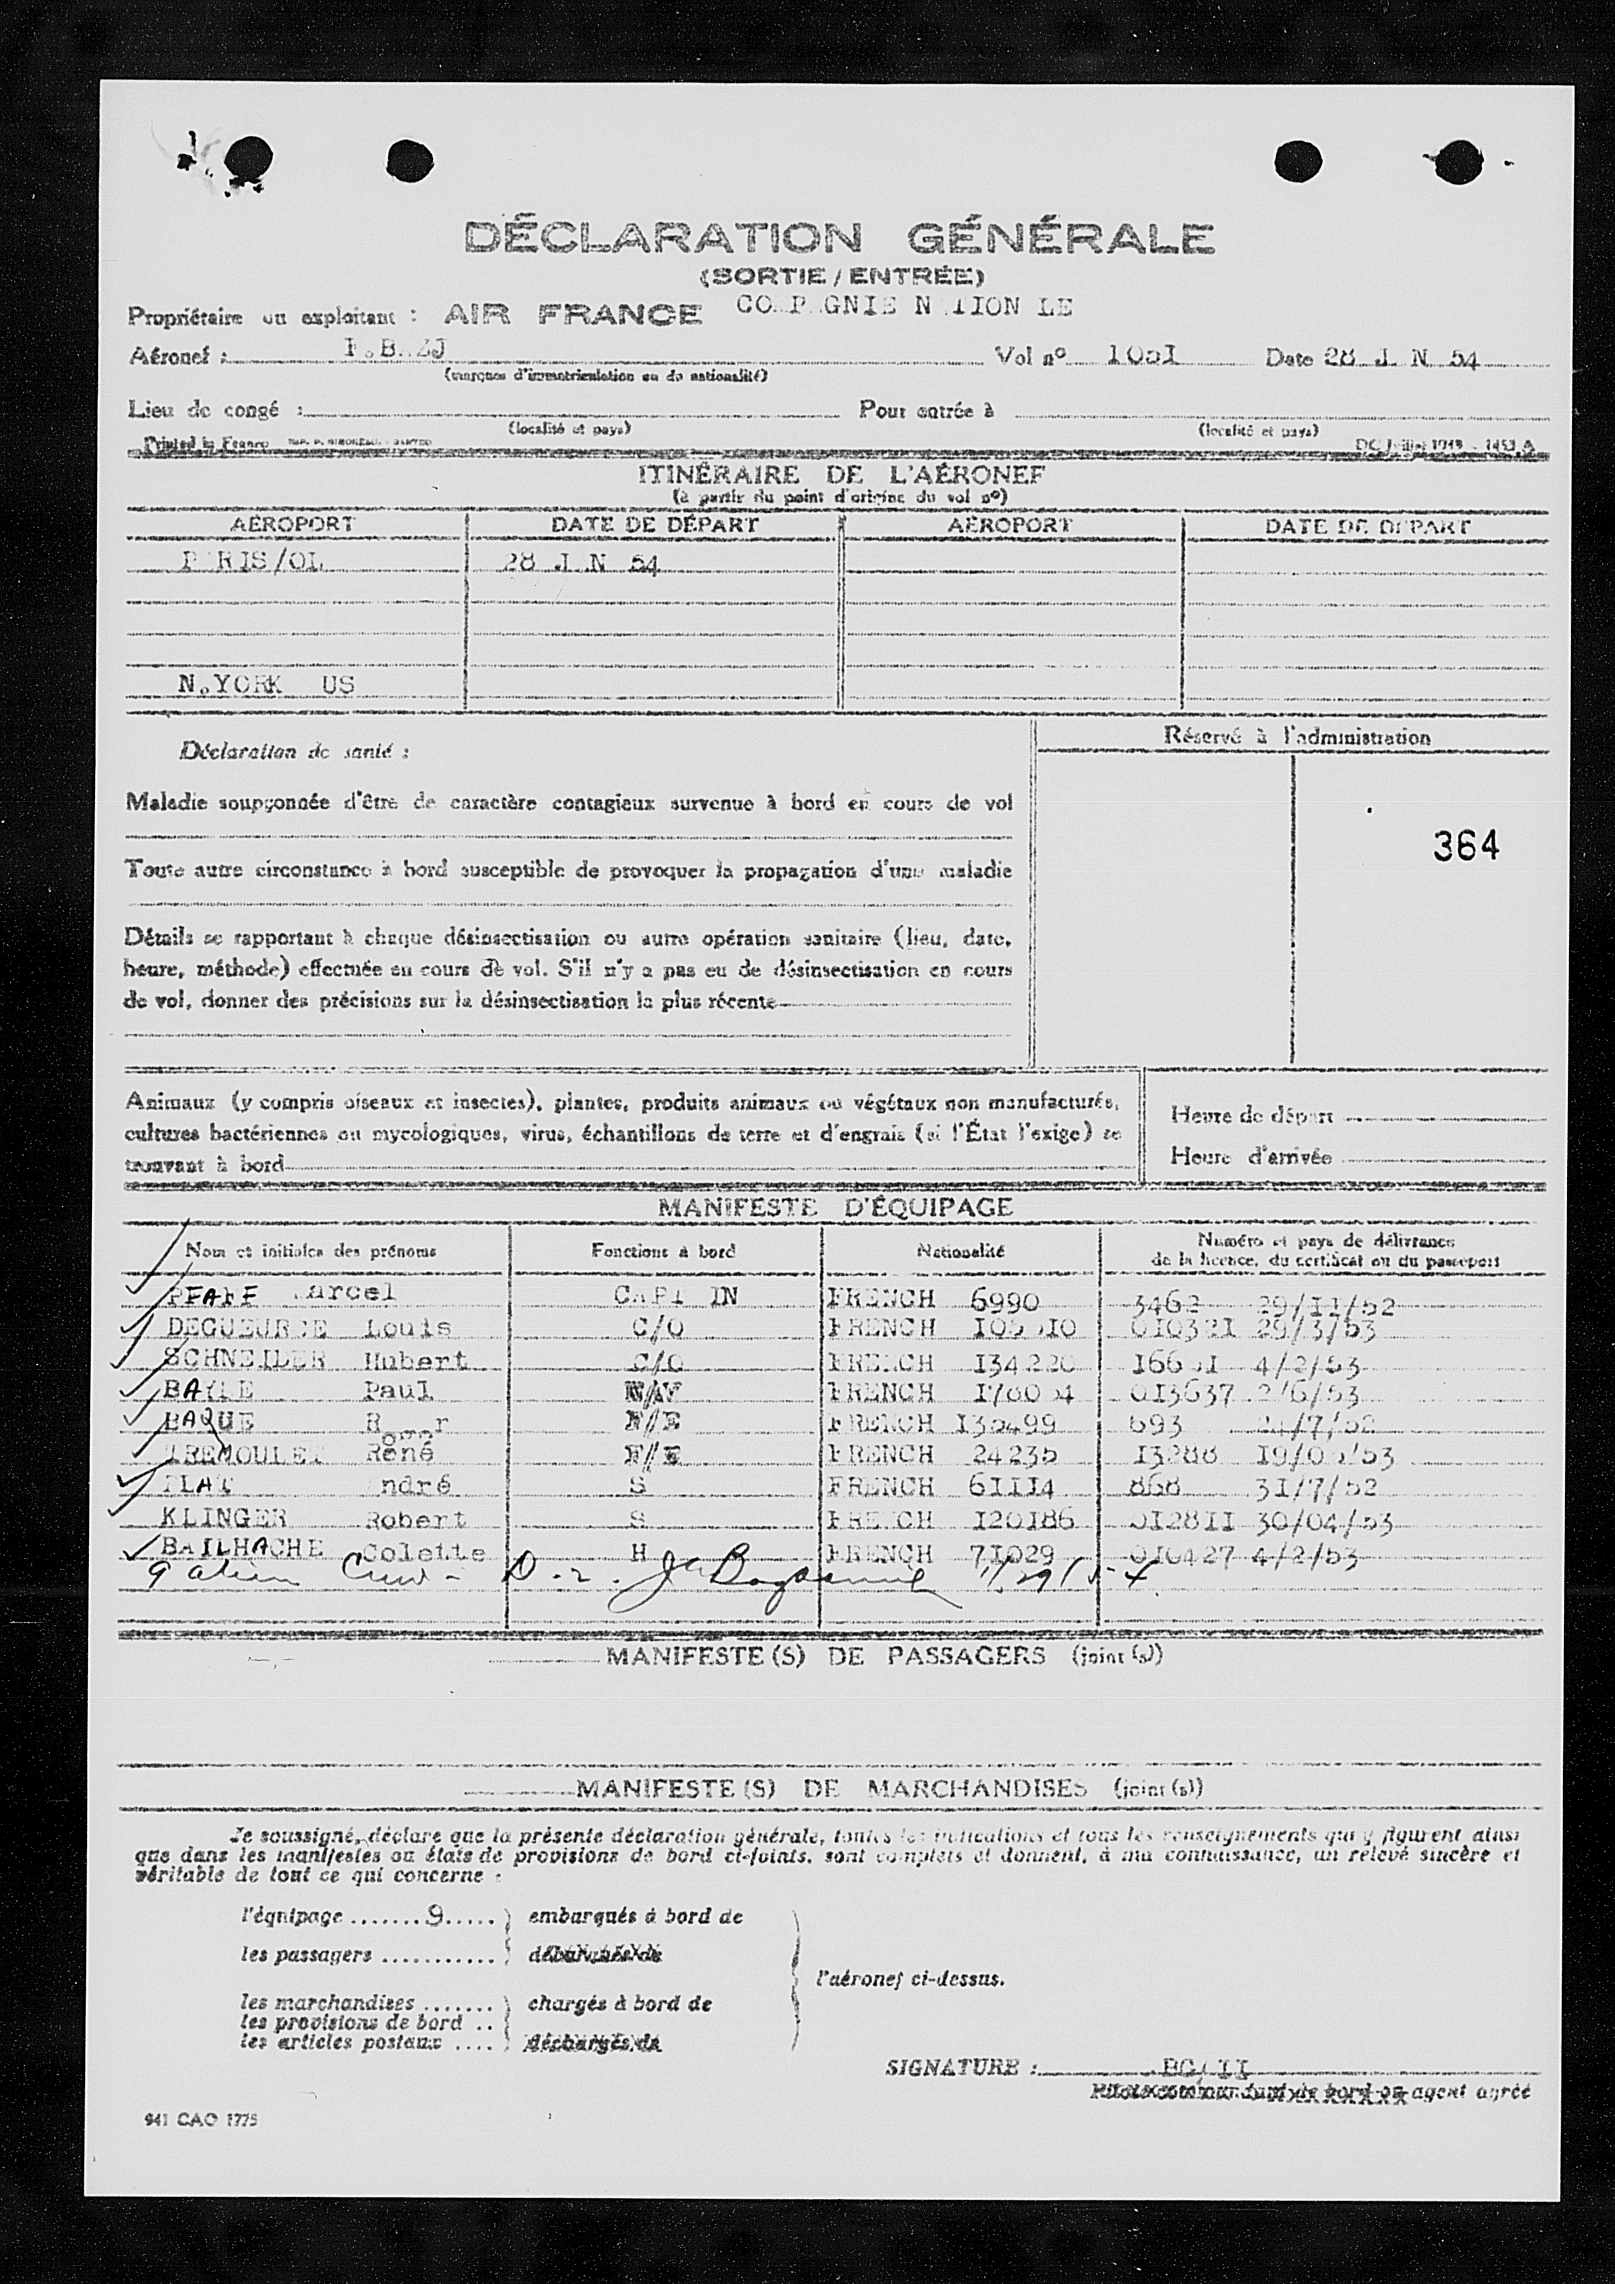 DÉCLARATION GÉNÉRALE
(SORTIE / ENTRÉE)
Propriétaire ou exploitant : AIR FRANCE CO P GNIE N TION LE
Aéronef : F.B. ZJ Vol nº 1051 Date 28 J N 54
(marques d'immatriculation ou de nationalité)
Lieu de congé : Pour entrée à
(localité et pays) (localité et pays)
Printed in France
ITINÉRAIRE DE L'AÉRONEF
(à partir du point d'origine du vol nº)
AÉROPORT DATE DE DÉPART AÉROPORT DATE DE DÉPART
P RIS/OL 28 J N 54
N.YORK US
Déclaration de santé : Réservé à l'administration
Maladie soupçonnée d'être de caractère contagieux survenue à bord en cours de vol
364
Toute autre circonstance à bord susceptible de provoquer la propagation d'une maladie
Détails se rapportant à chaque désinsectisation ou autre opération sanitaire (lieu, date,
heure, méthode) effectuée en cours de vol. S'il n'y a pas eu de désinsectisation en cours
de vol, donner des précisions sur la désinsectisation la plus récente
Animaux (y compris oiseaux et insectes), plantes, produits animaux ou végétaux non manufacturés,
cultures bactériennes ou mycologiques, virus, échantillons de terre et d'engrais (si l'État l'exige) se
trouvant à bord
Heure de départ
Heure d'arrivée
MANIFESTE D'ÉQUIPAGE
Nom et initiales des prénoms Fonctions à bord Nationalité Numéro et pays de délivrance
de la licence, du certificat ou du passeport
arcel FRENCH 6990 3462 29/11/52
Louis C/O FRENCH 29/3/53
SCHNEIDER Hubert C/O FRENCH 134220 4/2/53
Paul FRENCH 013637
BAQUE R oge r FRENCH 135499 693
TREMOULET René F/E FRENCH 24235 13288
PLAT ndré S FRENCH 61114 868 31/7/52
KLINGER Robert S FRENCH 120186 012811 30/04/53
BAILHACHE Colette H FRENCH 71029 4/2/53
9 alien Crew -
MANIFESTE(S) DE PASSAGERS (joint (s))
MANIFESTE(S) DE MARCHANDISES (joint (s))
Je soussigné, déclare que la présente déclaration générale, toutes les indications et tous les renseignements qui y figurent ainsi
que dans les manifestes ou états de provisions de bord ci-joints, sont complets et donnent, à ma connaissance, un relevé sincère et
véritable de tout ce qui concerne :
l'équipage .......9..... embarqués à bord de
les passagers ........... débarqués de
l'aéronef ci-dessus.
les marchandises ....... chargés à bord de
les provisions de bord ..
les articles postaux .... déchargés de
SIGNATURE :
Pilote commandant de bord ou agent agréé
941 CAO 1775